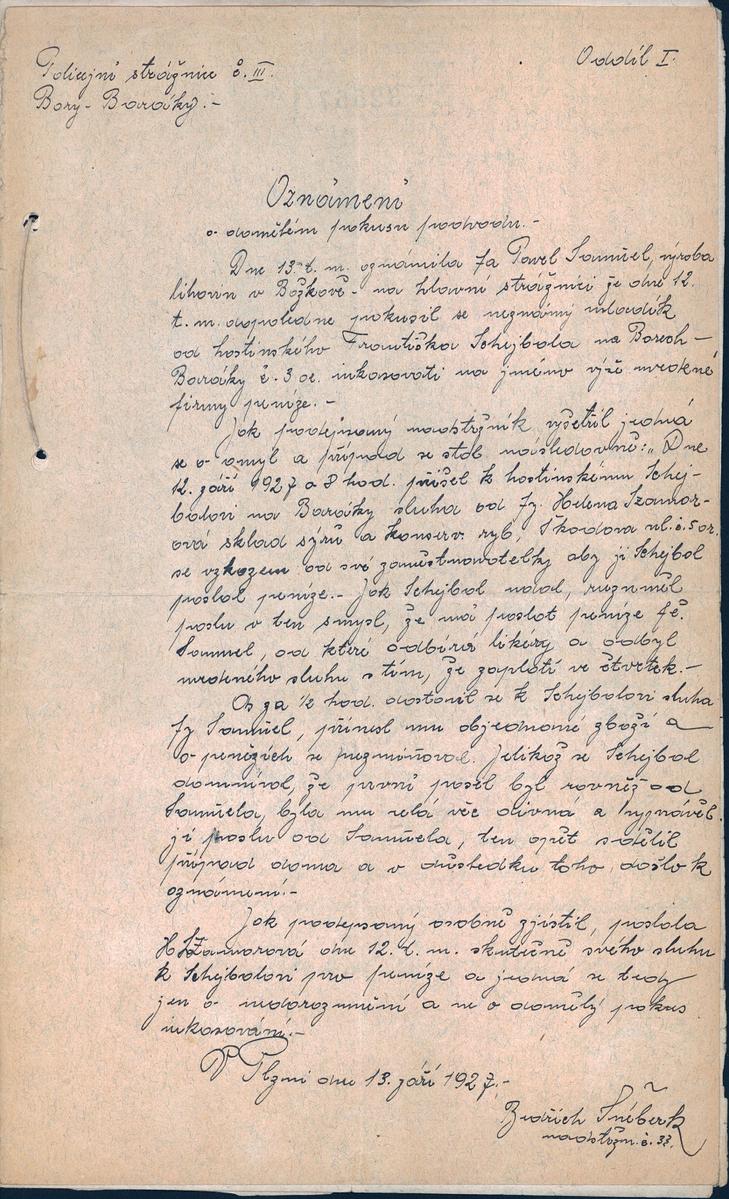 Policejní strážnice č. III.
Oddíl I.
Bory - Baráky.-
Oznámení
o domělém pokusu podvodu.-
Dne 13. t. m. oznámila fa Pavel Samuel, výroba
lihovin v Božkově - na hlavní strážnici že dne 12.
t. m. dopoledne pokusil se neznámý mladík
od hostinského Františka Schejbala na Borech -
Baráky č. 3 oc. inkasovati na jméno výše uvedené
firmy peníze.-
Jak podepsaný nadstrážník vyšetřil jedná
se o omyl a případ se stal následovně: „Dne
12. září 1927 a 8 hod. přišel k hostinskému Schej-
balovi na Baráky sluha od fy. Helena Szamor-
ová sklad sýrů a konserv. ryb, Škodova ul. č. 5 or.
se vzkazem od své zaměstnavatelky aby jí Schejbal
poslal peníze.- Jak Schejbal udal, rozuměl
poslu v ten smysl, že má poslat peníze fě.
Samuel, od které odbírá likéry a odbyl
uvedeného sluhu s tím, že zaplatí ve čtvrtek.-
As za ½ hod. dostavil se k Schejbalovi sluha
fy Samuel, přinesl mu objednané zboží a
o penězích se nezmiňoval. Jelikož se Schejbal
domníval, že první posel byl rovněž od
Samuela, byla mu celá věc divná a vyprávěl
ji poslu od Samuela, ten opět sdělil
případ doma a v důsledku toho došlo k
oznámení.-
Jak podepsaný osobně zjistil, poslala
H. Szamorová dne 12. t. m. skutečně svého sluhu
k Schejbalovi pro peníze a jedná se tedy
jen o nedorozumění a ne o domělý pokus
inkasování.-
V Plzni dne 13. září 1927.-
Bedřich
nadstrážn. č. 37.